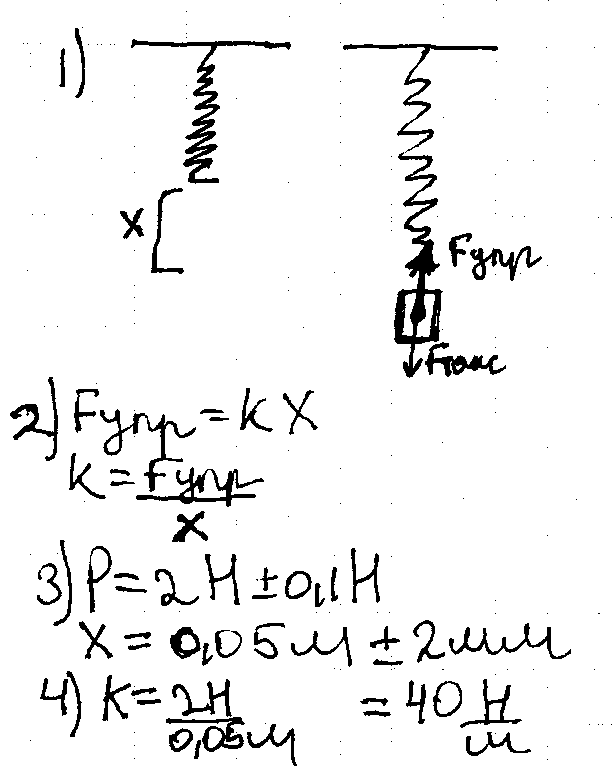 1)
X
Fупр
Fтяж
2) Fупр = k X
k = Fупр / X
3) P = 2 Н ± 0,1 Н
X = 0,05 м ± 2 мм
4) k = 2Н / 0,05 м = 40 Н / м